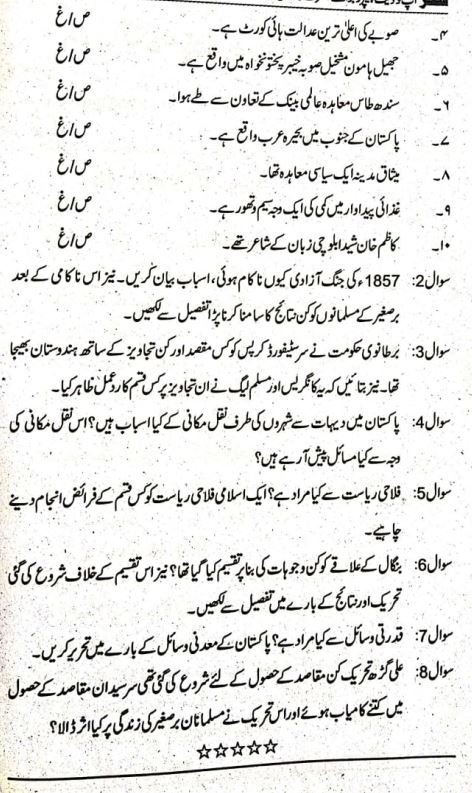 ۴۔ صوبے کی اعلیٰ ترین عدالت ہائی کورٹ ہے۔ ص/غ
۵۔ جھیل ہامون مشخیل صوبہ خیبر پختونخواہ میں واقع ہے۔ ص/غ
۶۔ سندھ طاس معاہدہ عالمی بینک کے تعاون سے طے ہوا۔ ص/غ
۷۔ پاکستان کے جنوب میں بحیرہ عرب واقع ہے۔ ص/غ
۸۔ میثاق مدینہ ایک سیاسی معاہدہ تھا۔ ص/غ
۹۔ غذائی پیداوار میں کمی کی ایک وجہ سیم و تھور ہے۔ ص/غ
۱۰۔ کاظم خان شیدا بلوچی زبان کے شاعر تھے۔ ص/غ
سوال2: 1857ء کی جنگ آزادی کیوں ناکام ہوئی، اسباب بیان کریں۔ نیز اس ناکامی کے بعد
برصغیر کے مسلمانوں کو کن نتائج کا سامنا کرنا پڑا تفصیل سے لکھیں۔
سوال3: برطانوی حکومت نے سر سٹیفورڈ کرپس کو کس مقصد اور کن تجاویز کے ساتھ ہندوستان بھیجا
تھا۔ نیز بتائیں کہ یہ کانگریس اور مسلم لیگ نے ان تجاویز پر کس قسم کا ردعمل ظاہر کیا۔
سوال4: پاکستان میں دیہات سے شہروں کی طرف نقل مکانی کے کیا اسباب ہیں؟ اس نقل مکانی کی
وجہ سے کیا مسائل پیش آرہے ہیں؟
سوال5: فلاحی ریاست سے کیا مراد ہے؟ ایک اسلامی فلاحی ریاست کو کس قسم کے فرائض انجام دینے
چاہیے۔
سوال6: بنگال کے علاقے کو کن وجوہات کی بنا پر تقسیم کیا گیا تھا؟ نیز اس تقسیم کے خلاف شروع کی گئی
تحریک اور نتائج کے بارے میں تفصیل سے لکھیں۔
سوال7: قدرتی وسائل سے کیا مراد ہے؟ پاکستان کے معدنی وسائل کے بارے میں تحریر کریں۔
سوال8: علی گڑھ تحریک کن مقاصد کے حصول کے لئے شروع کی گئی تھی سرسید ان مقاصد کے حصول
میں کتنے کامیاب ہوئے اور اس تحریک نے مسلمانان برصغیر کی زندگی پر کیا اثر ڈالا؟
☆☆☆☆☆